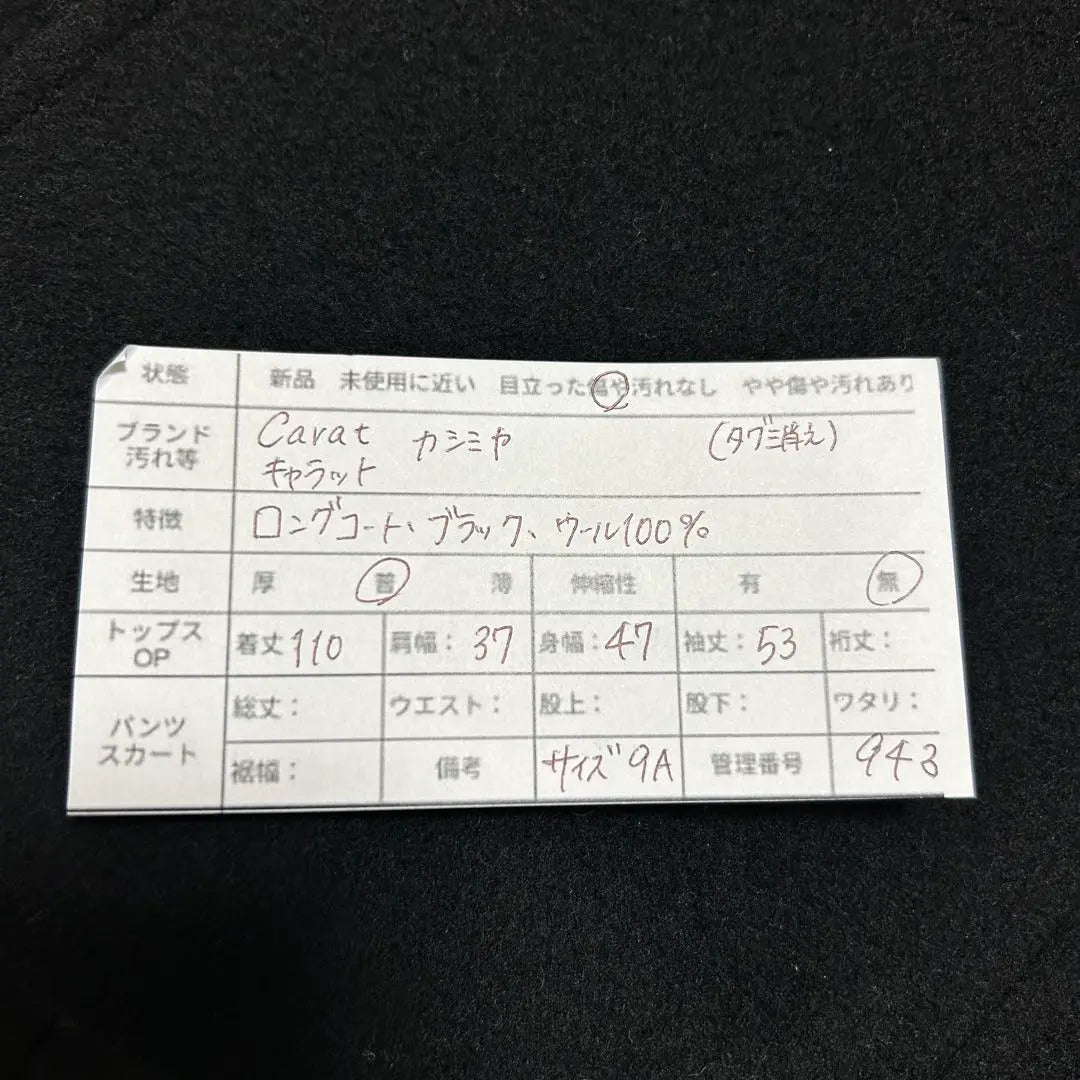 状態 新品 未使用に近い 目立った傷や汚れなし やや傷や汚れあり
ブランド Carat カシミヤ (タグ消え)
汚れ等 キャラット
特徴 ロングコート、ブラック、ウール100%
生地 厚 普 薄 伸縮性 有 無
トップス OP 着丈110 肩幅:37 身幅:47 袖丈:53 裄丈:
パンツ 総丈: ウエスト: 股上: 股下: ワタリ:
スカート 裾幅: 備考 サイズ9A 管理番号 943